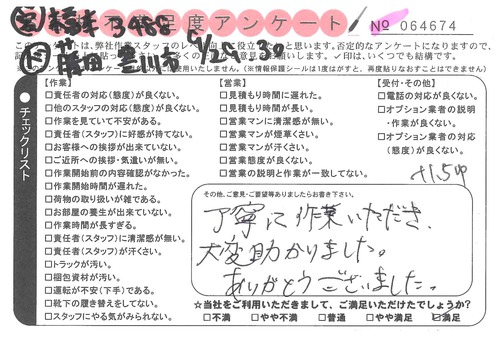 満足度アンケート
№ 064674
3488
6/29 30
豊川市
【作業】
□責任者の対応(態度)が良くない。
□他のスタッフの対応(態度)が良くない。
□作業を見ていて不安がある。
□責任者(スタッフ)に好感が持てない。
□お客様への挨拶が出来ていない。
□ご近所への挨拶・気遣いが無い。
□作業開始前の内容確認がなかった。
□作業開始時間が遅れた。
□荷物の取り扱いが雑である。
□お部屋の養生が出来ていない。
□作業時間が長すぎる。
□責任者(スタッフ)に清潔感が無い。
□責任者(スタッフ)が汗くさい。
□トラックが汚い。
□梱包資材が汚い。
□運転が不安(下手)である。
□靴下の履き替えをしてない。
□スタッフにやる気がみられない。
【営業】
□見積もり時間に遅れた。
□見積もり時間が長い。
□営業マンに清潔感が無い。
□営業マンが煙草くさい。
□営業マンが汗くさい。
□営業態度が良くない。
□営業の説明と作業が一致してない。
【受付・その他】
□電話の対応が良くない。
□オプション業者の説明
・作業が良くない。
□オプション業者の対応
(態度)が良くない。
●チェックリスト
その他、ご意見・ご要望等ありましたらお書き下さい。
丁寧に作業いただき、
大変助かりました。
ありがとうございました。
☆当社をご利用いただきまして、ご満足いただけたでしょうか?
□不満 □やや不満 □普通 □やや満足 ☑満足